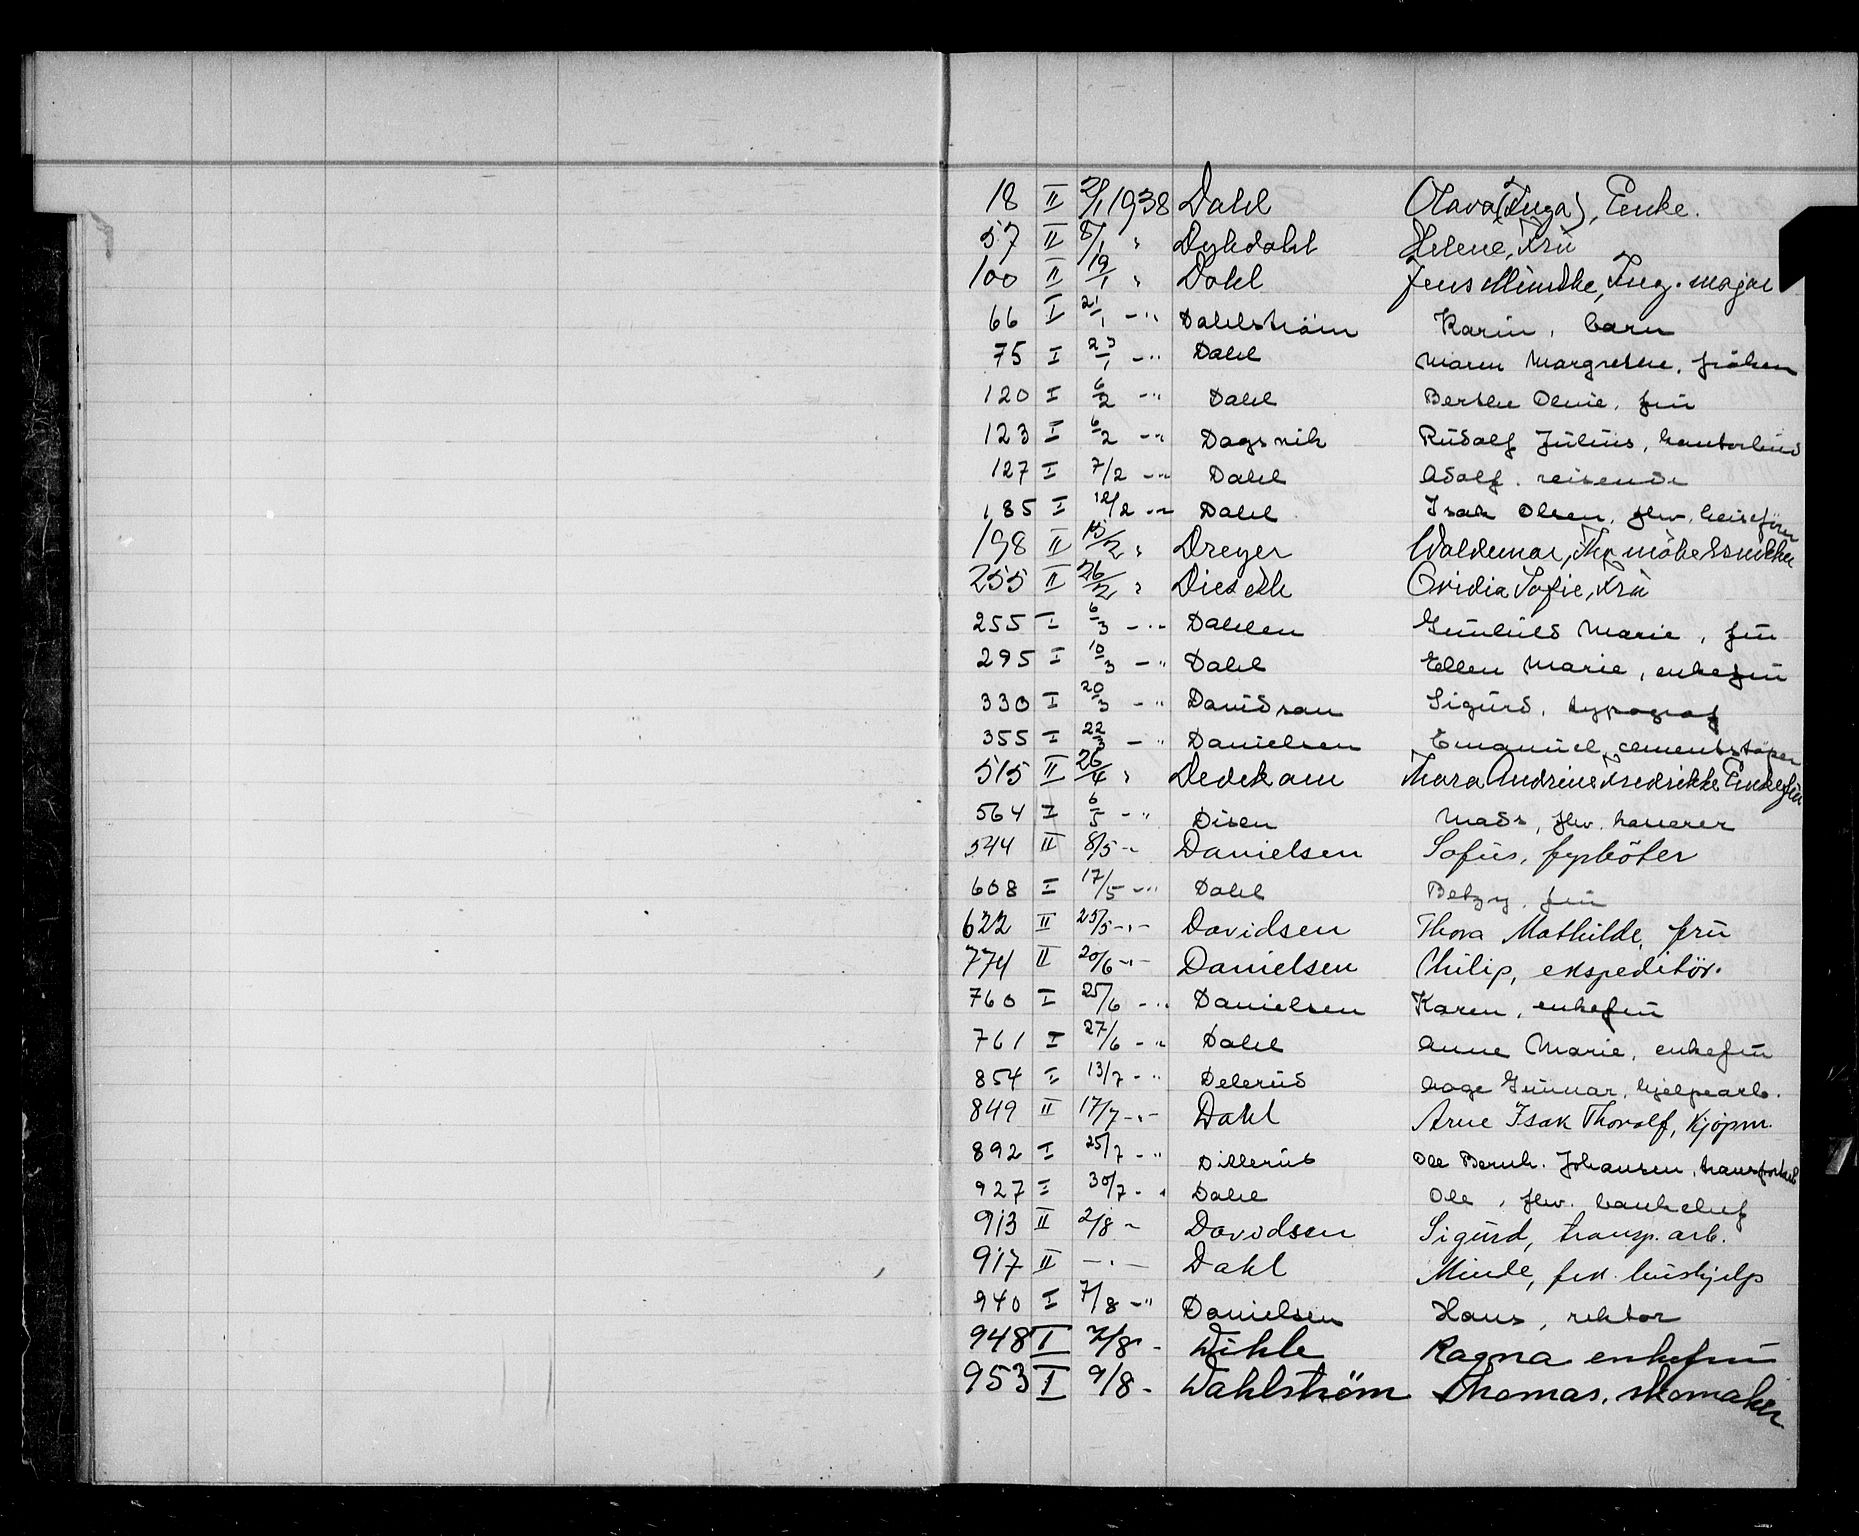 18 II 2/1 1938 Dahl Olava (Inga), Enke.
57 II 8/1 " Dykdahl Helene, Fru
100 II 19/1 " Dahl Jens Minthe, Ing. major
66 I 21/1 -"- Dahlström Karin, barn
75 I 23/1 -"- Dahl Maren Margrethe, fröken
120 I 6/2 -"- Dahl Berthe Oline, fru
123 I 6/2 -"- Dagsvik Rudolf Julius, kontorbud
127 I 7/2 -"- Dahl Adolf, reisende
185 I 12/2 -"- Dahl Isak Olsen, fhv. heisefører
198 II 15/2 " Dreyer Valdemar, Thr. möbelsnekker
255 II 26/2 " Diesch Ovidia Sofie, Fru
255 I 6/3 -"- Dahlen Gunhild Marie, fru
295 I 10/3 -"- Dahl Ellen Marie, enkefru
330 I 20/3 -"- Davidson Sigurd, typograf
355 I 22/3 -"- Danielsen Emanuel, cementstøper
515 II 26/4 " Dedekam Thora Andrine Fredrikke Enkefru
564 I 6/5 -"- Disen Mads, fhv. hauerer
544 II 8/5 -"- Danielsen Sofus, fyrböter
608 I 17/5 -"- Dahl Betzy, fru
622 II 25/5 -"- Davidsen Thora Mathilde, fru
774 II 20/6 -"- Danielsen Philip, ekspeditör.
760 I 25/6 -"- Danielsen Karen, enkefru
761 I 27/6 -"- Dahl Anne Marie, enkefru
854 I 13/7 -"- Delerud Aage Gunnar, hjelpearb.
849 II 17/7 -"- Dahl Arne Isak Thoralf, Kjöpm.
892 I 25/7 -"- Dillerud Ole Bernh. Johansen, transportarb
927 I 30/7 -"- Dahl Ole, fhv. bankchef
913 II 2/8 - Davidsen Sigurd, transp. arb.
917 II -"- Dahl Minde, frk. hushjelp
940 I 7/8 -"- Danielsen Hans, rektor
948 I 7/8 - Dihle Ragna enkefru
953 I 9/8 - Dahlström Thomas, skomaker